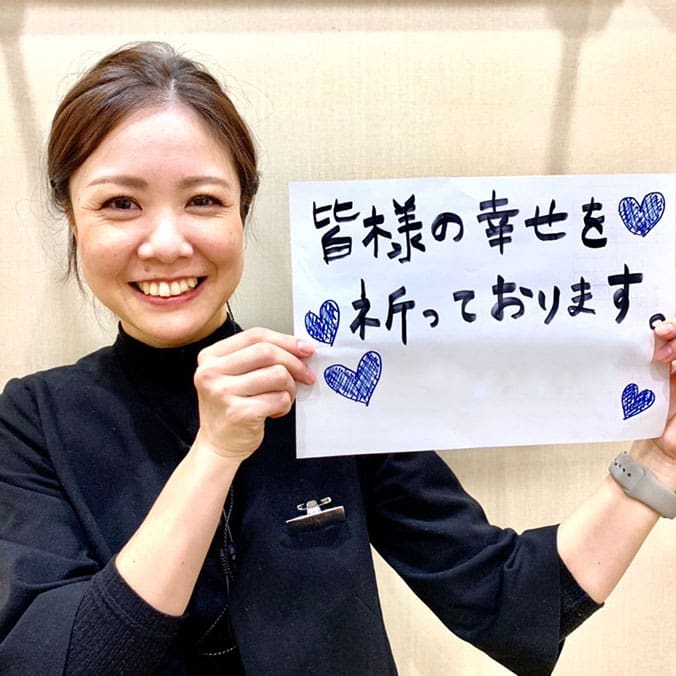 皆様の幸せを
祈っております。